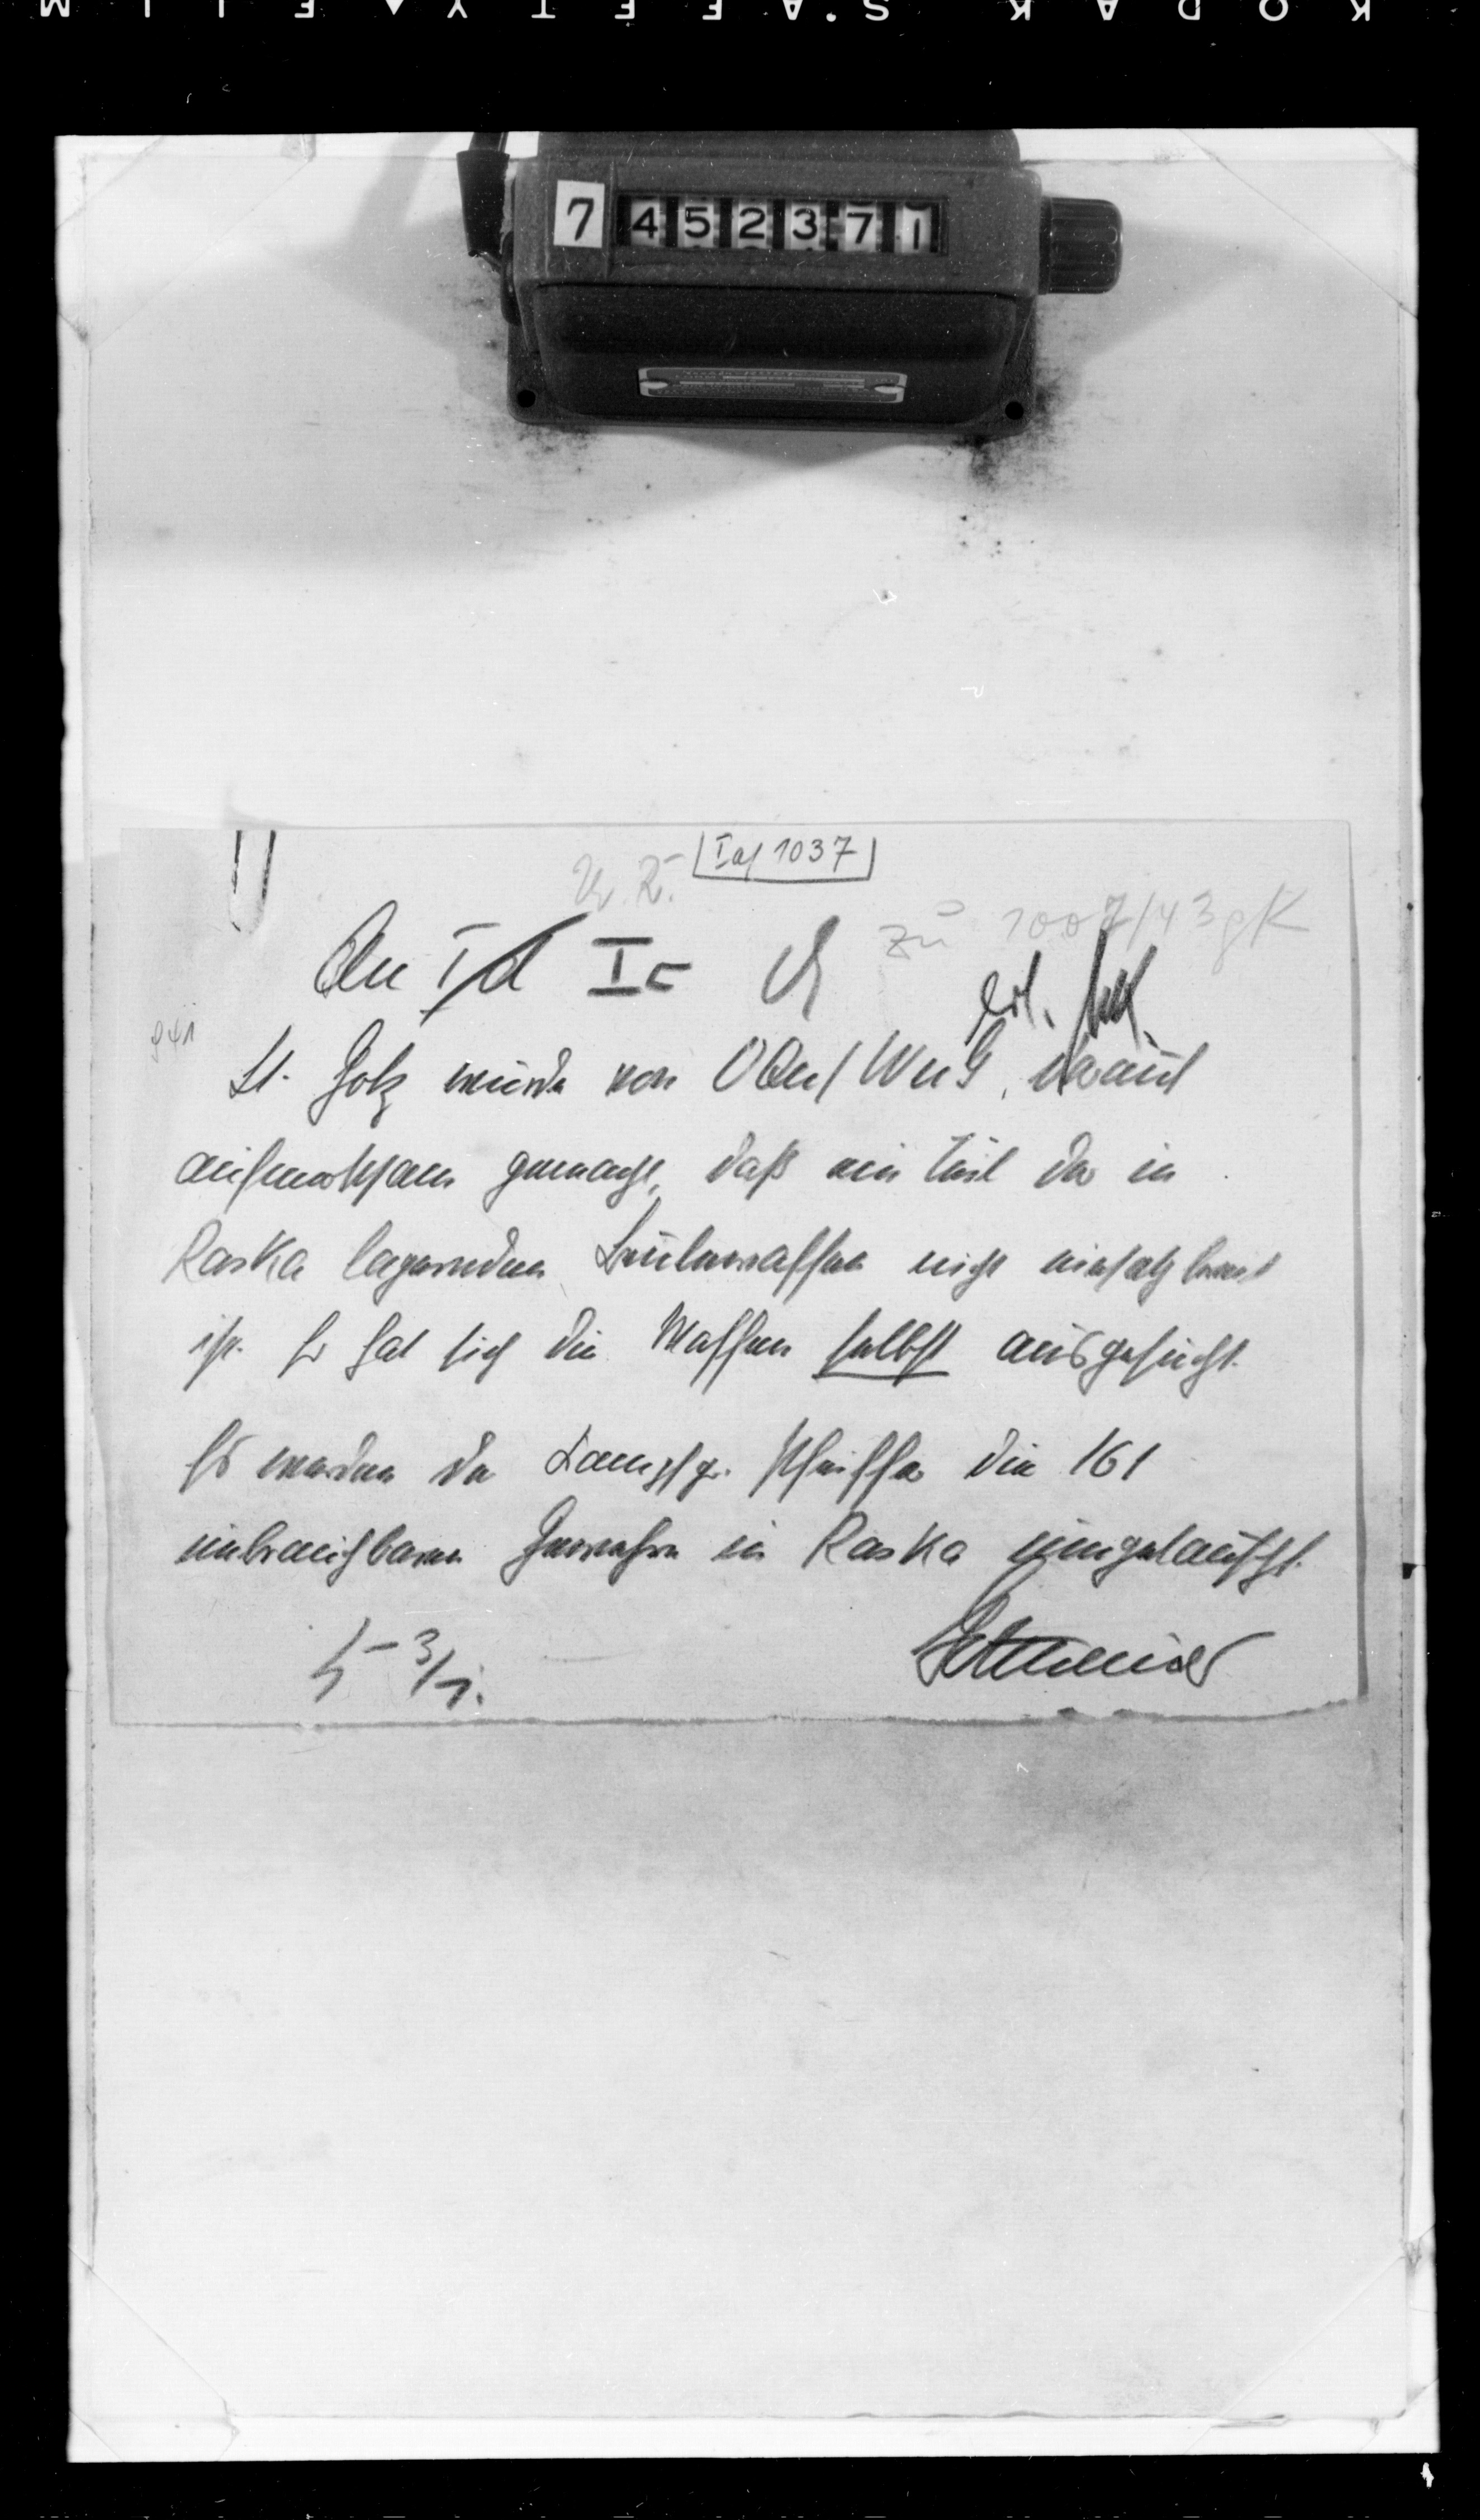 KODAK SAFETY FILM
7 452371
Ia/ 1037
zu 1007/43 gK
An Id Ic
erl.
941
Lt. Golz wurde von OQu/WuG, darauf
aufmerksam gemacht, daß ein Teil der in
Raska lagernden Beutewaffen nicht einsatzbereit
ist. Er hat sich die Waffen selbst ausgesucht.
Es werden der Kampfgr. Pfeiffer die 161
unbrauchbaren Gewehre in Raska umgetauscht.
3/7.